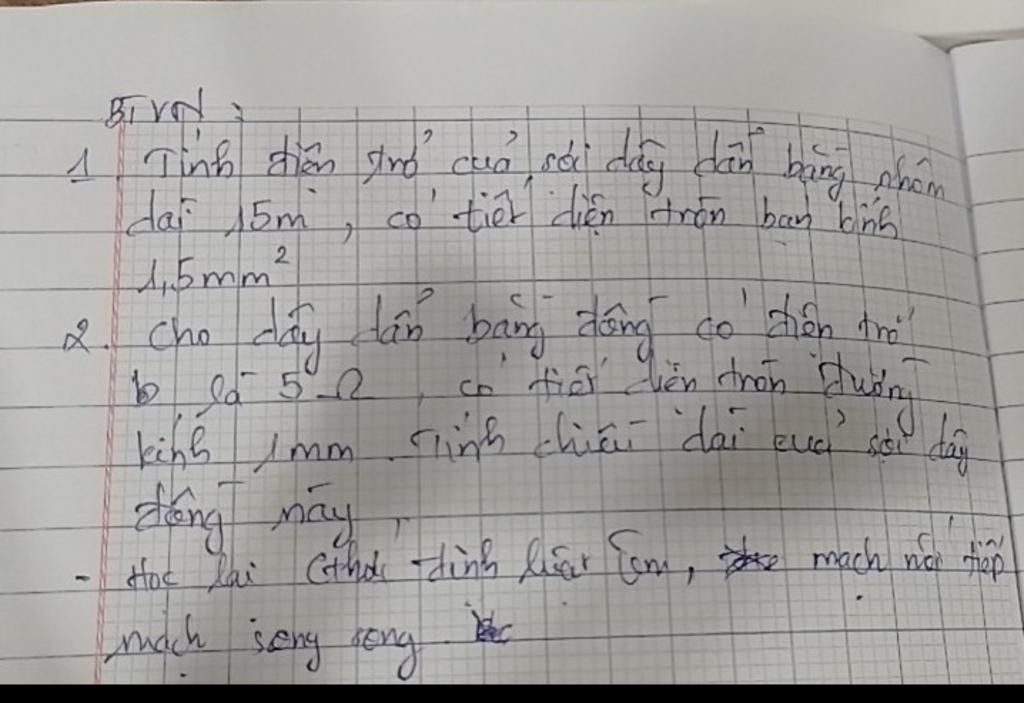 BTVN :
1 Tính điện trở của sợi dây dẫn bằng nhôm
dài 15m, có tiết diện tròn bán kính
1,5mm²
2. Cho dây dẫn bằng đồng có điện trở
là 5 Ω, có tiết diện tròn đường
kính 1mm. Tính chiều dài của sợi dây
đồng này,
- Học lại định luật Ôm, mạch nối tiếp
mạch song song.